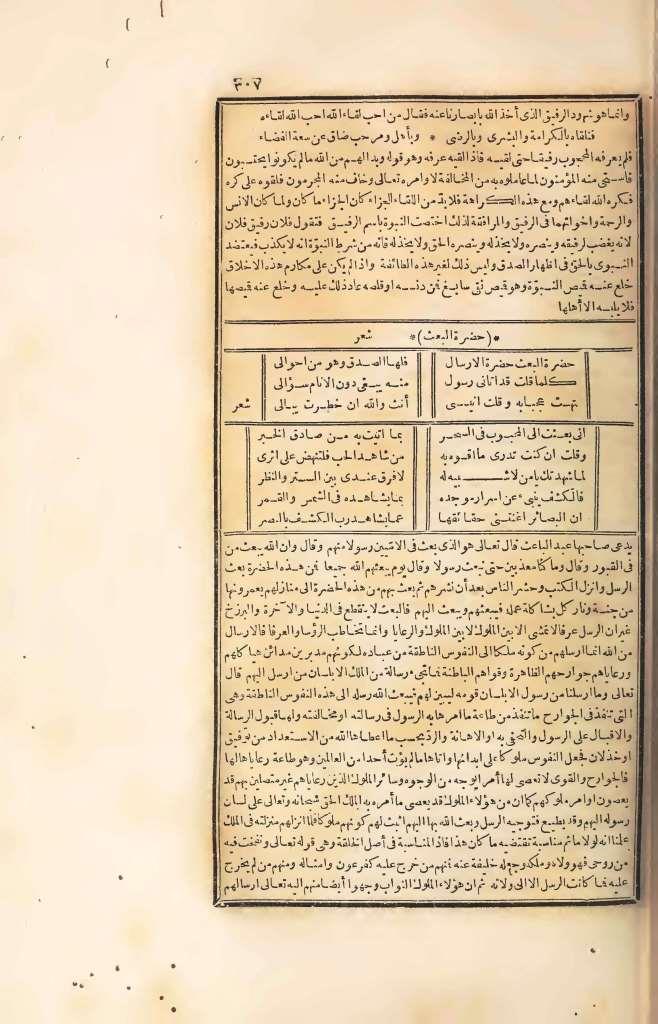 ٣٠٧
وانما هو شهود الرفيق الذى أخذ الله بابصارنا عنه فقال من احب لقاء الله احب الله لقاءه
فتلقاه بالكرامة والبشرى وبالرضى * وبأهل ومرحب ضاق عن سعة الفضاء
فلم يعرفه المحجوب رفيقا حتى لقيه فاذا لقيه عرفه وهو قوله وبدا لهم من الله مالم يكونوا يحتسبون
فاستحى منه المؤمنون لما عاملوه به من المخالفة لاوامره تعالى وخاف منه المجرمون فلقوه على كره
فكره الله لقاءهم ومع هذه الكراهة فلا بد من اللقاء للجزاء كان الجزاء ما كان ولما كان الانس
والرحمة واخواتهما فى الرفيق والمرافقة لذلك اختصت النبوة باسم الرفيق فتقول فلان رفيق فلان
لانه يغضب لرفيقه وينصره ولا يخذله وينصره الحق ولا يخذله فانه من شرط النبوة انه لا يكذب فيعتضد
النبوى بالحق فى اظهار الصدق وليس ذلك لغير هذه الطائفة واذا لم يكن على مكارم هذه الاخلاق
خلع عنه قميص النبوة وهو قميص نقى سابغ فمن دنسه او قلصه عاد ذلك عليه وخلع عنه قيصها
فلا يلبسه الا أهلها
*(حضرة البعث)* شعر
حضرة البعث حضرة الارسال فلها الصدق وهو من احوالى
كلما قلت قد اتانى رسول منه يبقى دون الانام سؤالى
تهت عجبا به وقلت انيسى أنت والله ان خطرت ببالى شعر
انى بعثت الى المحبوب فى السحر بما اتيت به من صادق الخبر
وقلت ان كنت تدرى ما اقوه به من شاهد الحب فلتنهض على اثرى
لما شهدتك يا من لا شبيه له لا فرق عندى بين الستر والنظر
فالكشف ينبىء عن اسرار موجده بما يشاهده فى الشمس والقمر
ان البصائر اغنتنى حقائقها عما يشاهد رب الكشف بالبصر
يدعى صاحبها عبد الباعث قال تعالى هو الذى بعث فى الاميين رسولا منهم وقال وان الله يبعث من
فى القبور وقال وما كنا معذبين حتى نبعث رسولا وقال يوم يبعثهم الله جميعا فمن هذه الحضرة بعث
الرسل وانزل الكتب وحشر الناس بعد أن نشرهم ثم بعث بهم من هذه الحضرة الى منازلهم يعمرونها
من جنة ونار كل بشاكلة عمله فيبعثهم ويبعث اليهم فالبعث لا ينقطع فى الدنيا والآخرة والبرزخ
غير ان الرسل عرفا لا تمشى الا بين الملوك لا بين الملوك والرعايا وانما تخاطب الرؤسا والعرفا فالارسال
من الله انما ارسلهم من كونه ملكا الى النفوس الناطقة من عباده لكونهم مدبرين مدائن هياكلهم
ورعاياهم جوارحهم الظاهرة وقواهم الباطنة فما تجىء رسالة من الملك الا بلسان من ارسل اليهم قال
تعالى وما ارسلنا من رسول الا بلسان قومه ليبين لهم فيبعث الله رسله الى هذه النفوس الناطقة وهى
التى تنفذ فى الجوارح ما تنفذ من طاعة ما امرها به الرسول فى رسالته او مخالفته ولها قبول الرسالة
والاقبال على الرسول والتحفى به او الاهانة والرد بحسب ما اعطاها الله من الاستعداد من توفيق
او خذلان فجعل النفوس ملوكا على ابدانها واتاها مالم يؤت أحدا من العالمين وهو طاعة رعاياها لها
فالجوارح والقوى لا تعصى لها أمرا بوجه من الوجوه وسائر الملوك الذين رعاياهم غير متصلين بهم قد
يعصون اوامر ملوكهم كما ان من هؤلاء الملوك قد يعصى ما أمره به الملك الحق سبحانه وتعالى على لسان
رسوله اليهم وقد يطيع فتوجيه الرسل وبعث الله بها اليهم اثبت لهم كونهم ملوكا فلما انزلهم منزلته فى الملك
علمنا انه لولا ما ثم مناسبة تقتضيه ما كان هذا فاذا المناسبة فى أصل الخلقة وهى قوله تعالى ونفخت فيه
من روحى فهو ولاه وملكه وجعله خليفة عنه فمنهم من خرج عليه كفرعون وامثاله ومنهم من لم يخرج
عليه فما كانت الرسل الا الى ولاته ثم ان هؤلاء الملوك النواب وجهوا أيضا منهم اليه تعالى ارسالهم